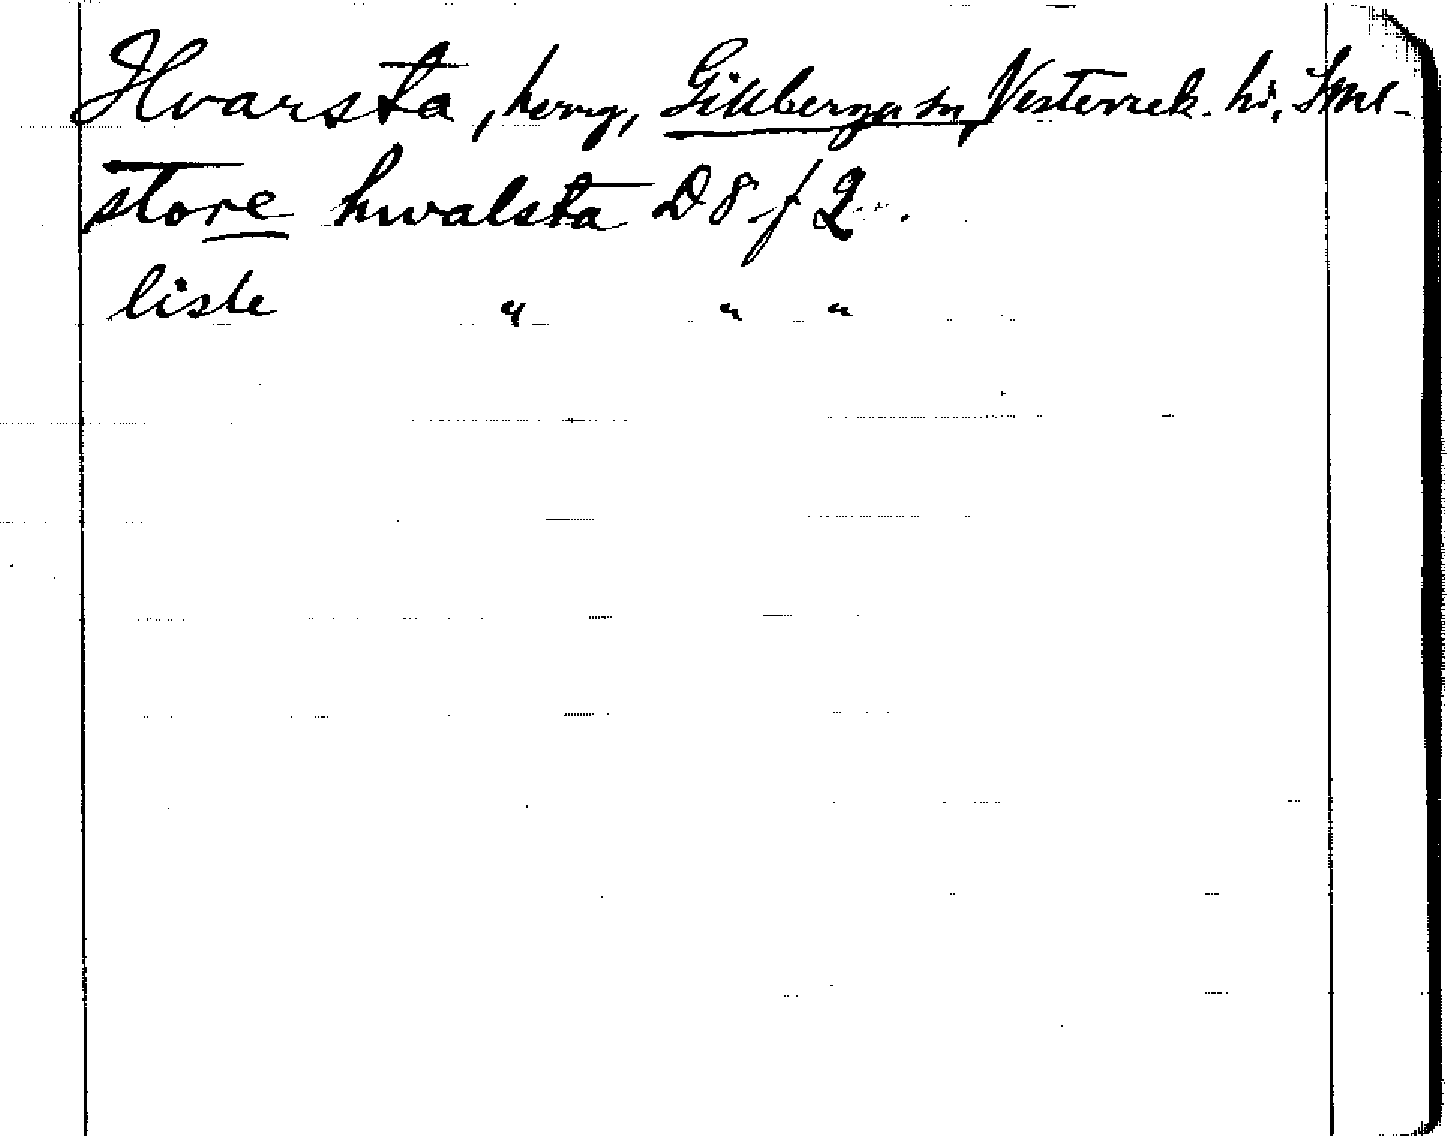 Hvarsta, herrg, Gillberga sn, Vesterrek. hd, Sml-
store hwalsta D 8 f 2.
lisle " " "